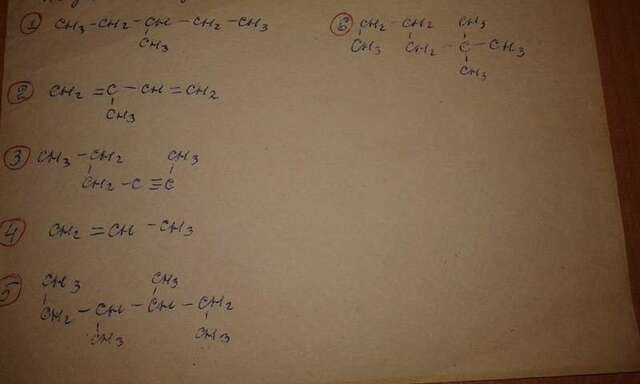 1 CH3 - CH2 - CH - CH2 - CH3
CH3
2 CH2 = C - CH = CH2
CH3
3 CH3 - CH2 CH3
CH2 - C ≡ C
4 CH2 = CH - CH3
5 CH3 CH3
CH2 - CH - CH - CH2
CH3 CH3
6 CH2 - CH2 CH3
CH3 CH2 - C - CH3
CH3